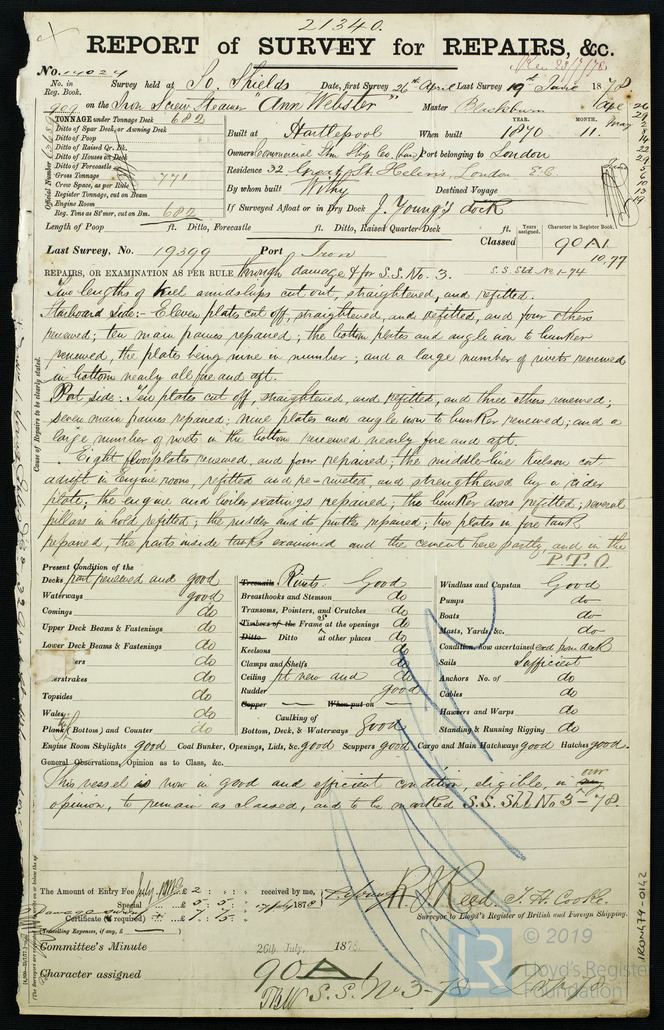 21340.
REPORT of SURVEY for REPAIRS, &c.
No. 14024
No. in Reg. Book.
Survey held at So. Shields Date, first Survey 26th April Last Survey 19th June 1878
909 on the Iron Screw Steamer "Ann Webster" Master Blackburn
TONNAGE under Tonnage Deck 682
Ditto of Spar Deck, or Awning Deck
Ditto of Poop
Ditto of Raised Qr. Dk.
Ditto of Houses on Deck
Ditto of Forecastle
Gross Tonnage 771
Crew Space, as per Rule
Register Tonnage, cut on Beam
Engine Room
Reg. Tons as St'mer, cut on Bm. 682
Official Number
YEAR. MONTH.
Built at Hartlepool When built 1870 11.
Owners Commercial Stm Ship Co. Port belonging to London
Residence 32 Great St. Helens, London E.C.
By whom built Withy Destined Voyage
If Surveyed Afloat or in Dry Dock J. Young's dock
Length of Poop ft. Ditto, Forecastle ft. Ditto, Raised Quarter Deck ft.
Years assigned. Character in Register Book.
Classed 90A1
10,77
Last Survey, No. 19399 Port Iron
S.S. Sld. No 1-74
REPAIRS, OR EXAMINATION AS PER RULE through damage & for S.S. No. 3.
Two lengths of keel amidships cut out, straightened, and refitted.
Starboard Side:- Eleven plates cut off, straightened, and refitted, and four others
renewed; ten main frames repaired; the bottom plates and angle iron to bunker
renewed, the plates being nine in number; and a large number of rivets renewed
in bottom nearly all fore and aft.
Port side: Ten plates cut off, straightened, and refitted, and three others renewed;
seven main frames repaired; nine plates and angle iron to bunker renewed; and a
large number of rivets in the bottom renewed nearly fore and aft.
Eight floorplates renewed, and four repaired; the middle-line Keelson cut
adrift in Engine room, refitted and re-riveted, and strengthened by a rider
plate; the engine and boiler seatings repaired; the bunker doors refitted; several
pillars in hold refitted; the rudder and its pintles repaired; two plates in fore tank
repaired, the parts inside tanks examined and the cement here partly, and in the
P.T.O
Cause of Repairs to be clearly stated.
Present Condition of the
Decks part renewed and good
Waterways good
Comings do
Upper Deck Beams & Fastenings do
Lower Deck Beams & Fastenings do
ers do
erstrakes do
Topsides do
Wales do
Plank (Bottom) and Counter do
Treenails Rivets Good
Breasthooks and Stemson do
Transoms, Pointers, and Crutches do
Timbers of the Frames at the openings do
Ditto Ditto at other places do
Keelsons do
Clamps and Shelfs do
Ceiling pt new and do
Rudder good
Copper When put on
Caulking of
Bottom, Deck, & Waterways Good
Windlass and Capstan Good
Pumps do
Boats do
Masts, Yards, &c. do
Condition, how ascertained exd from deck
Sails Sufficient
Anchors No. of do
Cables do
Hawsers and Warps do
Standing & Running Rigging do
Engine Room Skylights good Coal Bunker, Openings, Lids, &c. good Scuppers good Cargo and Main Hatchways good Hatches good.
General Observations, Opinion as to Class, &c.
This vessel is now in good and efficient condition, eligible, in our
opinion, to remain as classed, and to be marked S.S. Sld No 3-78.
The Amount of Entry Fee £ 2 : : received by me,
Special £ 5 : 5 :
Certificate (if required) £ 7 : 15 :
(Travelling Expenses, if any, £ )
R. J. Reed. T. H. Cooke.
Surveyor to Lloyd's Register of British and Foreign Shipping.
Committee's Minute 26th July, 1878.
Character assigned 90A1
S.S. No 3-78
IRON479-0142
LR
© 2019
Lloyd's Register
Foundation